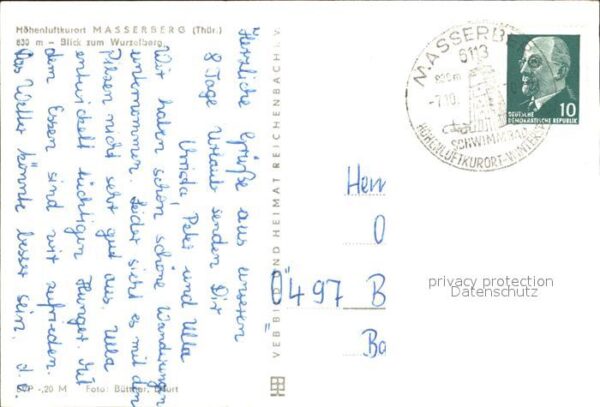 Höhenluftkurort MASSERBERG (Thür.)
830 m - Blick zum Wurzelberg
Herzliche Grüße aus unseren
8 Tage Urlaub senden Dir
Ursula, Peter und Ulla
Wir haben schon schöne Wanderungen
unternommen. Leider sieht es mit den
Pilzen nicht sehr gut aus. Ulla
entwickelt tüchtigen Hunger. Mit
dem Essen sind wir zufrieden.
Das Wetter könnte besser sein. d. O.
EVP -,20 M Foto: Büttner, Erfurt
VEB BILD UND HEIMAT REICHENBACH i. V.
MASSERBE
6113
830m
-7.10.
SCHWIMMBAD
HÖHENLUFTKURORT-WINTER
10
DEUTSCHE
DEMOKRATISCHE REPUBLIK
Herr
O
Ö497 B
Ba
privacy protection
Datenschutz